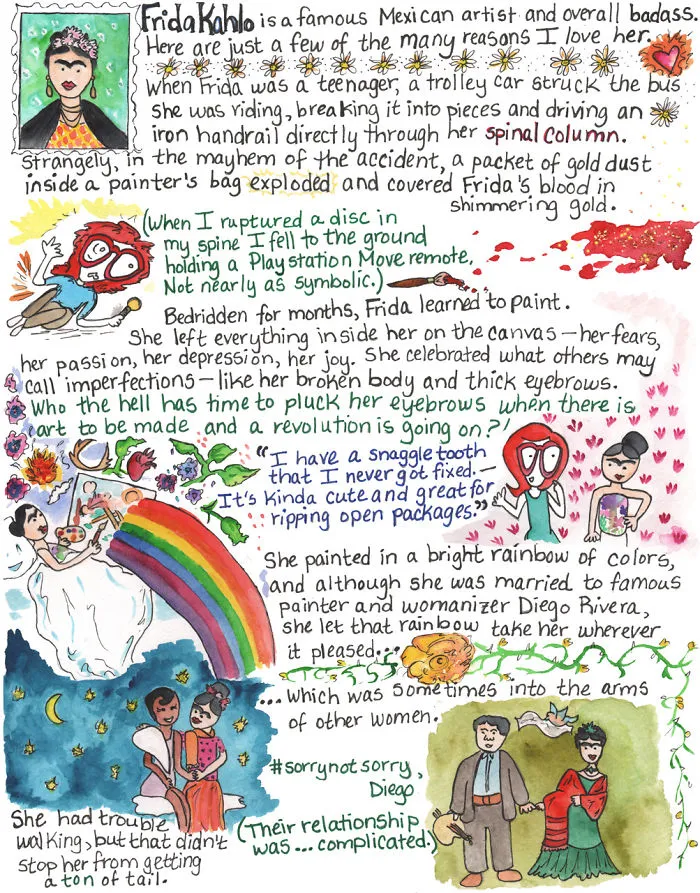 Frida Kahlo is a famous Mexican artist and overall badass.
Here are just a few of the many reasons I love her.
When Frida was a teenager, a trolley car struck the bus
she was riding, breaking it into pieces and driving an
iron handrail directly through her spinal column.
Strangely, in the mayhem of the accident, a packet of gold dust
inside a painter's bag exploded and covered Frida's blood in
shimmering gold.
(When I ruptured a disc in
my spine I fell to the ground
holding a Playstation Move remote.
Not nearly as symbolic.)
Bedridden for months, Frida learned to paint.
She left everything inside her on the canvas—her fears,
her passion, her depression, her joy. She celebrated what others may
call imperfections—like her broken body and thick eyebrows.
Who the hell has time to pluck her eyebrows when there is
art to be made and a revolution is going on?!
"I have a snaggle tooth
that I never got fixed.—
It's kinda cute and great for
ripping open packages."
She painted in a bright rainbow of colors,
and although she was married to famous
painter and womanizer Diego Rivera,
she let that rainbow take her wherever
it pleased...
...which was sometimes into the arms
of other women.
#sorrynotsorry,
Diego
(Their relationship
was... complicated.)
She had trouble
walking, but that didn't
stop her from getting
a ton of tail.